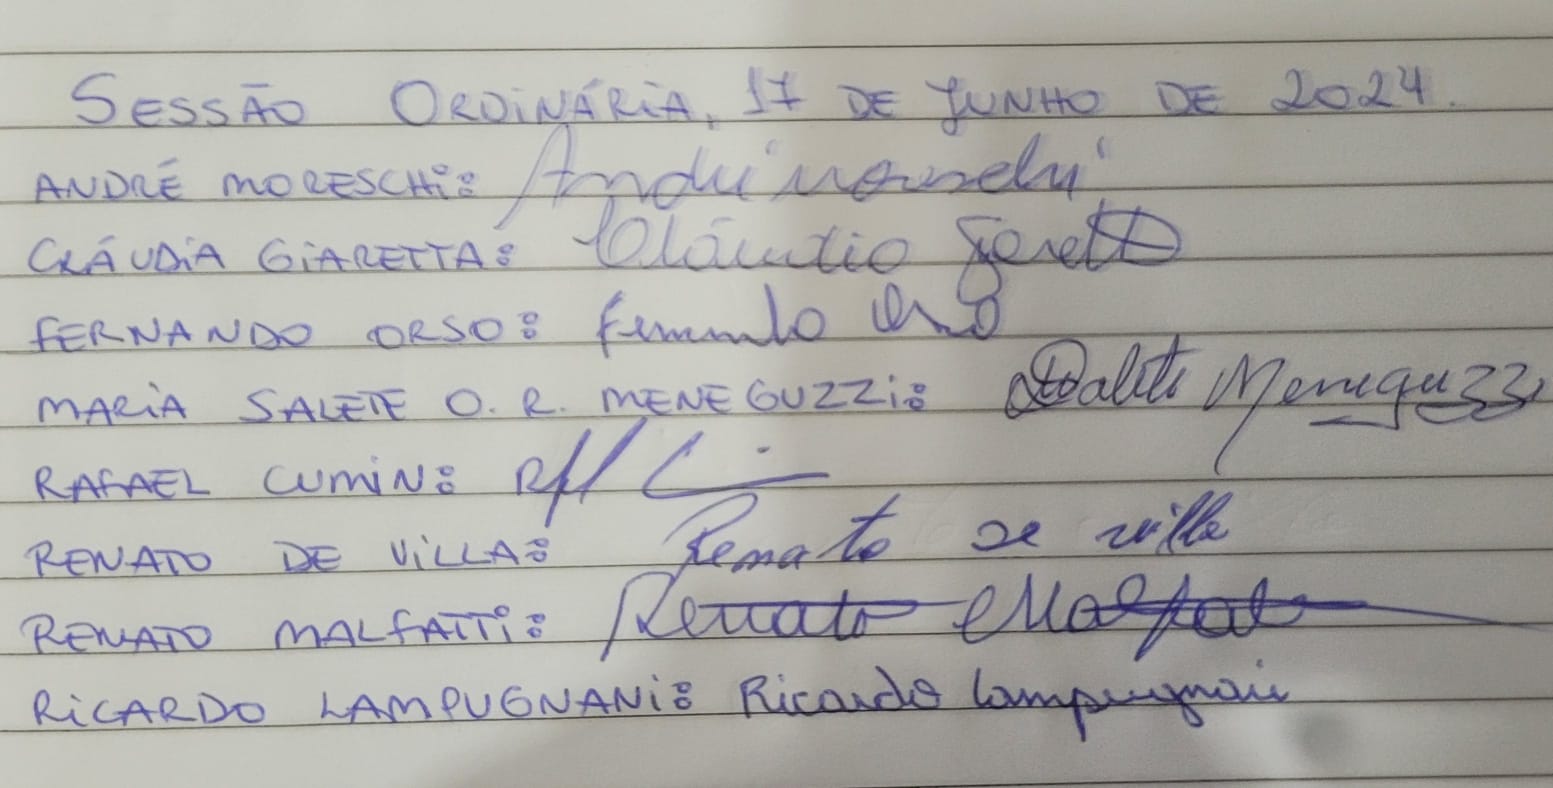 SESSÃO ORDINÁRIA, 17 DE JUNHO DE 2024.
ANDRÉ MORESCHI: André Moreschi
CLÁUDIA GIARETTA: Cláudia Giaretta
FERNANDO ORSO: Fernando Orso
MARIA SALETE O. R. MENEGUZZI: Salete Meneguzzi
RAFAEL CUMIN:
RENATO DE VILLA: Renato de villa
RENATO MALFATTI: Renato Malfat
RICARDO LAMPUGNANI: Ricardo Lampugnani